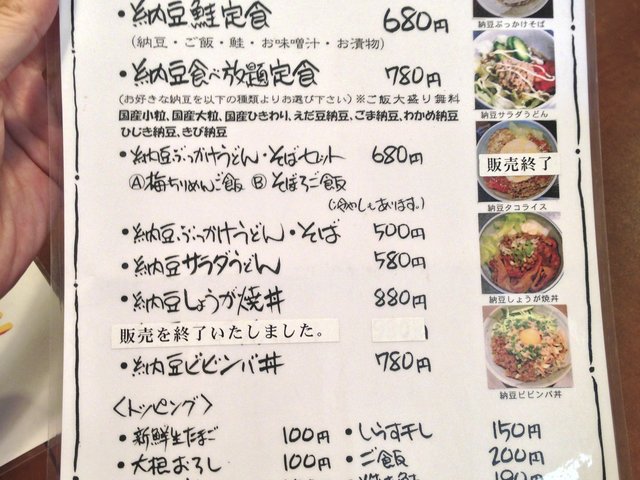 ・納豆鮭定食 680円
(納豆・ご飯・鮭・お味噌汁・お漬物)
・納豆食べ放題定食 780円
(お好きな納豆を以下の種類よりお選び下さい)※ご飯大盛り無料
国産小粒、国産大粒、国産ひきわり、えだ豆納豆、ごま納豆、わかめ納豆
ひじき納豆、きび納豆
・納豆ぶっかけうどん・そばセット 680円
Ⓐ梅ちりめんご飯 Ⓑそぼろご飯
(冷やしもあります。)
・納豆ぶっかけうどん・そば 500円
・納豆サラダうどん 580円
・納豆しょうが焼丼 880円
販売を終了いたしました。
・納豆ビビンバ丼 780円
〈トッピング〉
・新鮮生たまご 100円
・大根おろし 100円
・しらす干し 150円
・ご飯 200円
納豆ぶっかけそば
納豆サラダうどん
販売終了
納豆タコライス
納豆しょうが焼丼
納豆ビビンバ丼